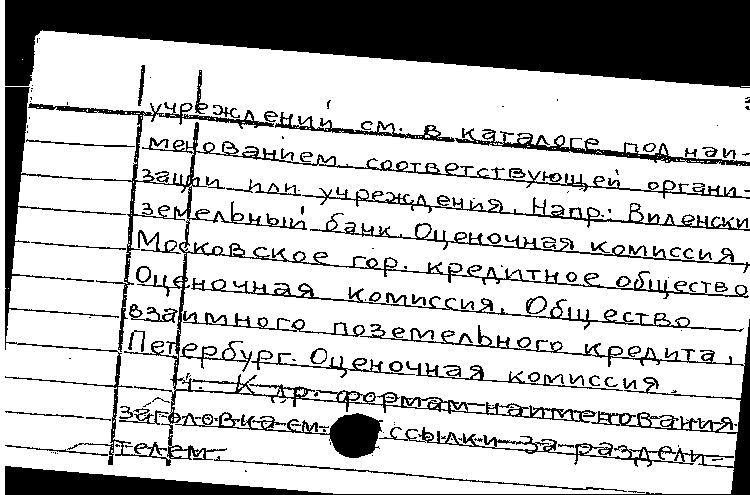 учреждений см. в каталоге под наи-
менованием соответствующей органи-
зации или учреждения. Напр: Виленский
земельный банк. Оценочная комиссия,
Московское гор. кредитное общество
Оценочная комиссия. Общество
взаимного поземельного кредита,
Петербург. Оценочная комиссия.
4. К др. формам наименования
заголовка см. ссылки за раздели-
телем.